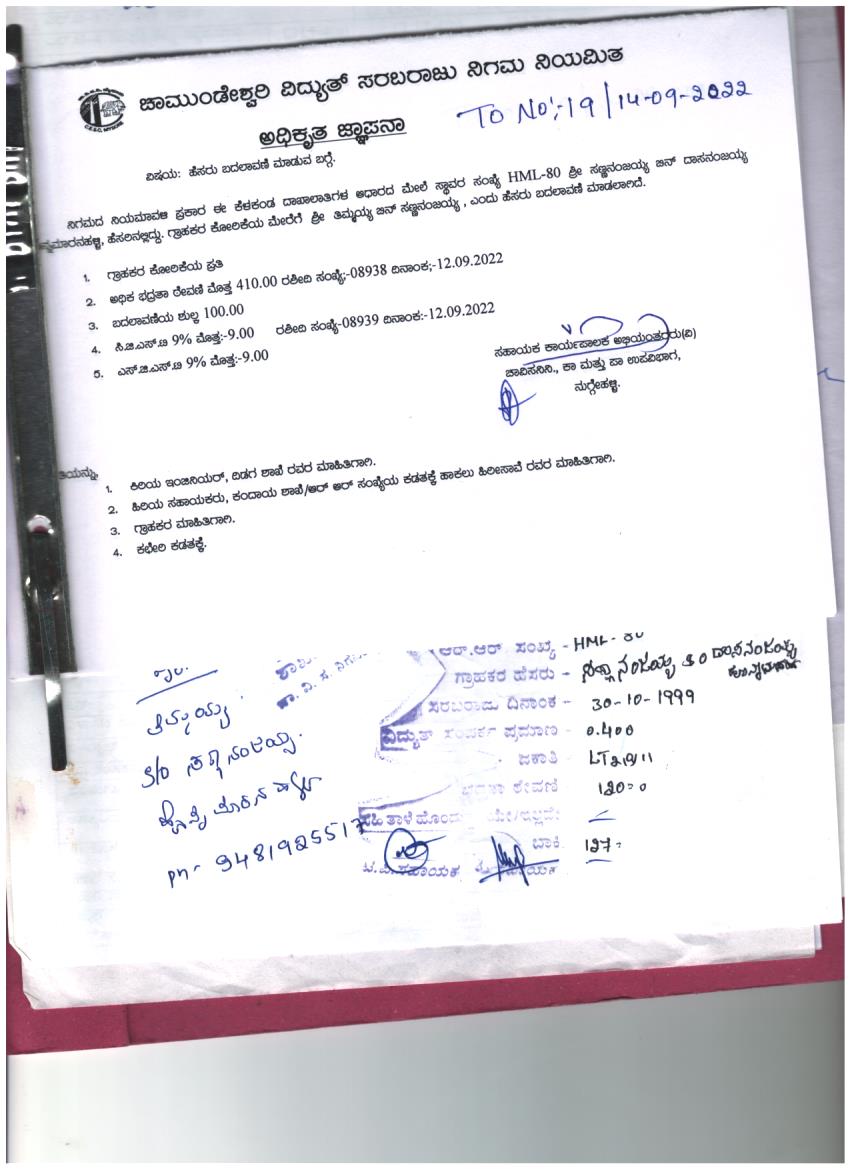 ಚಾಮುಂಡೇಶ್ವರಿ ವಿದ್ಯುತ್ ಸರಬರಾಜು ನಿಗಮ ನಿಯಮಿತ
TO NO:-19/14-09-2022
ಅಧಿಕೃತ ಜ್ಞಾಪನಾ
ವಿಷಯ: ಹೆಸರು ಬದಲಾವಣೆ ಮಾಡುವ ಬಗ್ಗೆ.
ನಿಗಮದ ನಿಯಮಾವಳಿ ಪ್ರಕಾರ ಈ ಕೆಳಕಂಡ ದಾಖಲಾತಿಗಳ ಆಧಾರದ ಮೇಲೆ ಸ್ಥಾವರ ಸಂಖ್ಯೆ HML-80 ಶ್ರೀ ಸಣ್ಣನಂಜಯ್ಯ ಬಿನ್ ದಾಸನಂಜಯ್ಯ
ಮಾರನಹಳ್ಳಿ, ಹೆಸರಿನಲ್ಲಿದ್ದು. ಗ್ರಾಹಕರ ಕೋರಿಕೆಯ ಮೇರೆಗೆ ಶ್ರೀ ತಿಮ್ಮಯ್ಯ ಬಿನ್ ಸಣ್ಣನಂಜಯ್ಯ , ಎಂದು ಹೆಸರು ಬದಲಾವಣೆ ಮಾಡಲಾಗಿದೆ.
1. ಗ್ರಾಹಕರ ಕೋರಿಕೆಯ ಪ್ರತಿ
2. ಅಧಿಕ ಭದ್ರತಾ ಠೇವಣಿ ಮೊತ್ತ 410.00 ರಶೀದಿ ಸಂಖ್ಯೆ:-08938 ದಿನಾಂಕ;-12.09.2022
3. ಬದಲಾವಣೆಯ ಶುಲ್ಕ 100.00
4. ಸಿ.ಜಿ.ಎಸ್.ಟಿ 9% ಮೊತ್ತ:-9.00 ರಶೀದಿ ಸಂಖ್ಯೆ-08939 ದಿನಾಂಕ:-12.09.2022
5. ಎಸ್.ಜಿ.ಎಸ್.ಟಿ 9% ಮೊತ್ತ:-9.00
ಸಹಾಯಕ ಕಾರ್ಯಪಾಲಕ ಅಭಿಯಂತರರು(ವಿ)
ಚಾವಿಸನಿನಿ., ಕಾ ಮತ್ತು ಪಾ ಉಪವಿಭಾಗ,
ನುಗ್ಗೇಹಳ್ಳಿ.
ತಿಯನ್ನು,
1. ಕಿರಿಯ ಇಂಜಿನಿಯರ್, ದಿಡಗ ಶಾಖೆ ರವರ ಮಾಹಿತಿಗಾಗಿ.
2. ಹಿರಿಯ ಸಹಾಯಕರು, ಕಂದಾಯ ಶಾಖೆ/ಆರ್ ಆರ್ ಸಂಖ್ಯೆಯ ಕಡತಕ್ಕೆ ಹಾಕಲು ಹಿರೀಸಾವೆ ರವರ ಮಾಹಿತಿಗಾಗಿ.
3. ಗ್ರಾಹಕರ ಮಾಹಿತಿಗಾಗಿ.
4. ಕಛೇರಿ ಕಡತಕ್ಕೆ.
ಆರ್.ಆರ್ ಸಂಖ್ಯೆ - HML- 80
ಗ್ರಾಹಕರ ಹೆಸರು - ಸಣ್ಣನಂಜಯ್ಯ ತಂ ದಾಸನಂಜಯ್ಯ
ಸರಬರಾಜು ದಿನಾಂಕ - 30-10-1999
ವಿದ್ಯುತ್ ಸಂಪರ್ಕ ಪ್ರಮಾಣ - 0.400
ಜಕಾತಿ -
ಠೇವಣಿ 120=0
ಸಹಿ ತಾಳೆ ಹೊಂದು
ಬಾಕಿ 127=
ತಿಮ್ಮಯ್ಯ
S/o ಸಣ್ಣನಂಜಯ್ಯ.
pn- 9481925517